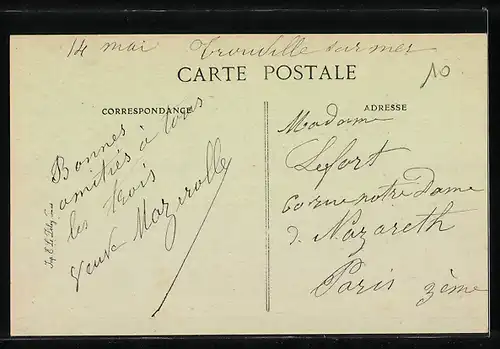 14 mai Trouville sur mer
CARTE POSTALE
10
CORRESPONDANCE
ADRESSE
Bonnes
amitiés à tous
les trois
Veuve Mazerolle
Madame
Lefort
60 rue notre Dame
d. Nazareth
Paris 3ème
Imp. E. Le Deley